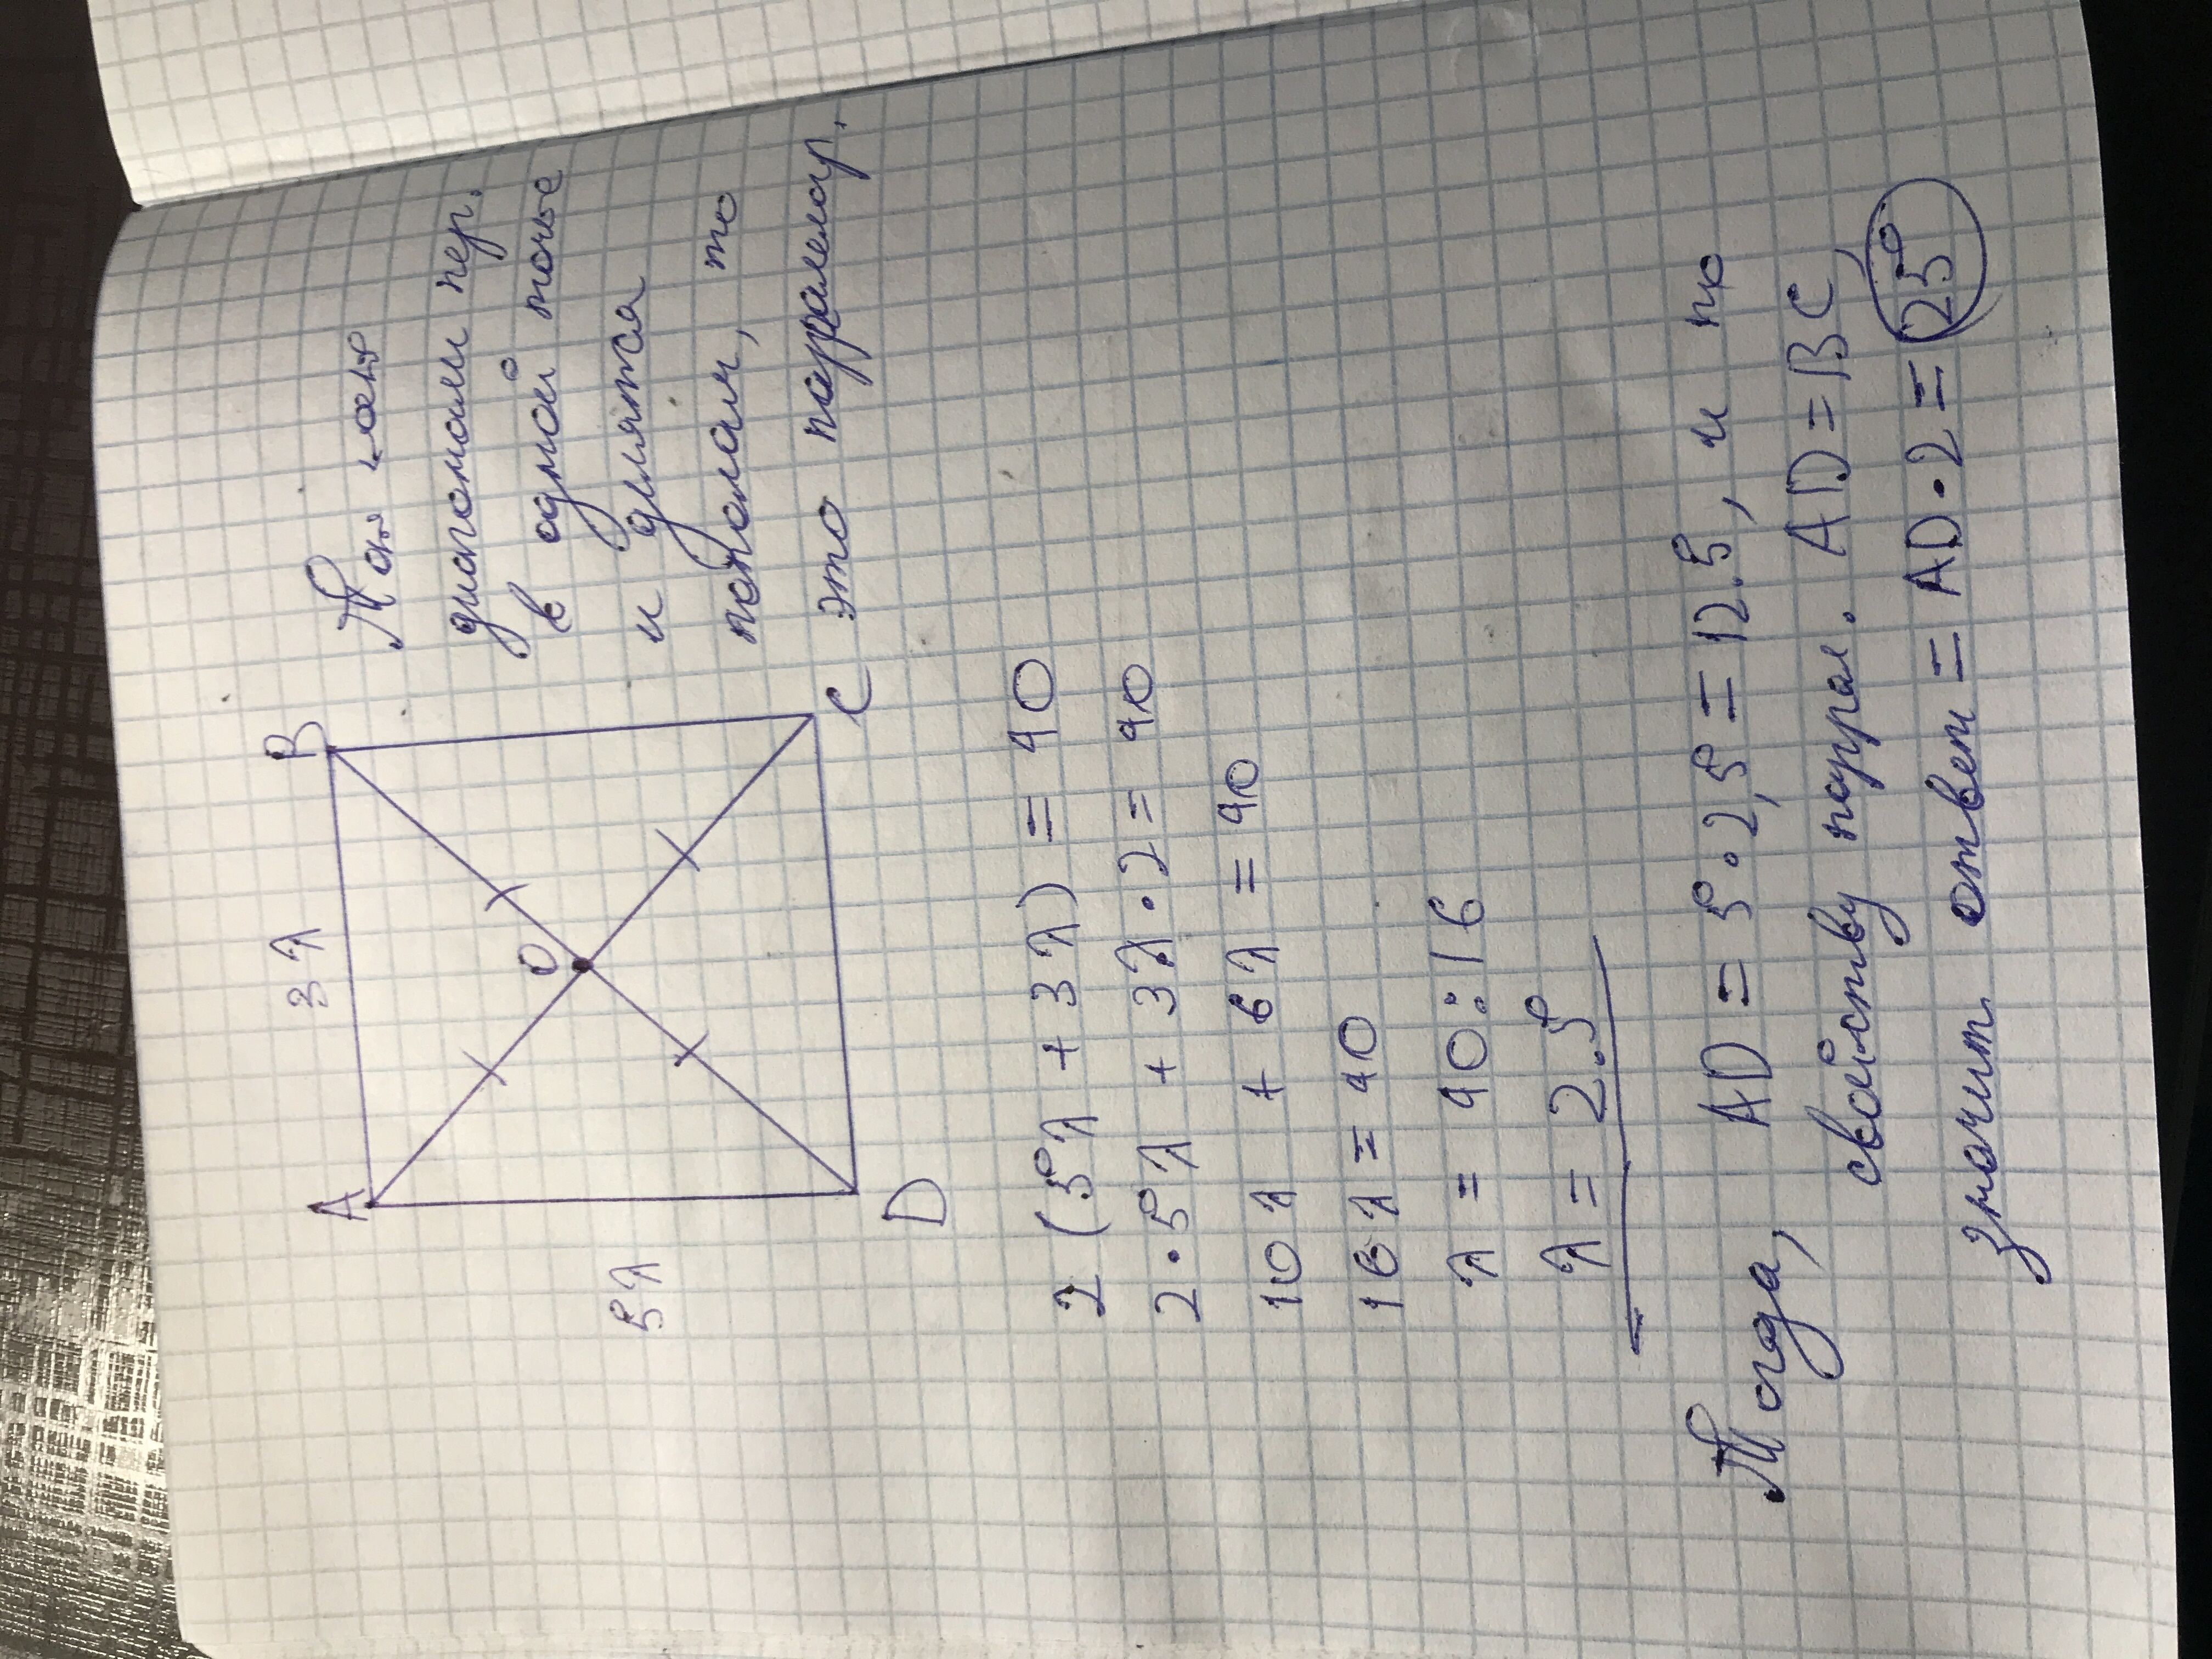 A
3λ
B
Так как
диагонали пер.
в одной точке
и делятся
пополам, то
это парралелогр.
O
5λ
D
C
2 (5λ + 3λ) = 40
2 · 5λ + 3λ · 2 = 40
10λ + 6λ = 40
16λ = 40
λ = 40 : 16
λ = 2.5
Тогда, AD = 5 · 2,5 = 12.5, и по
свойству паррал. AD = BC,
значит ответ = AD · 2 = 25